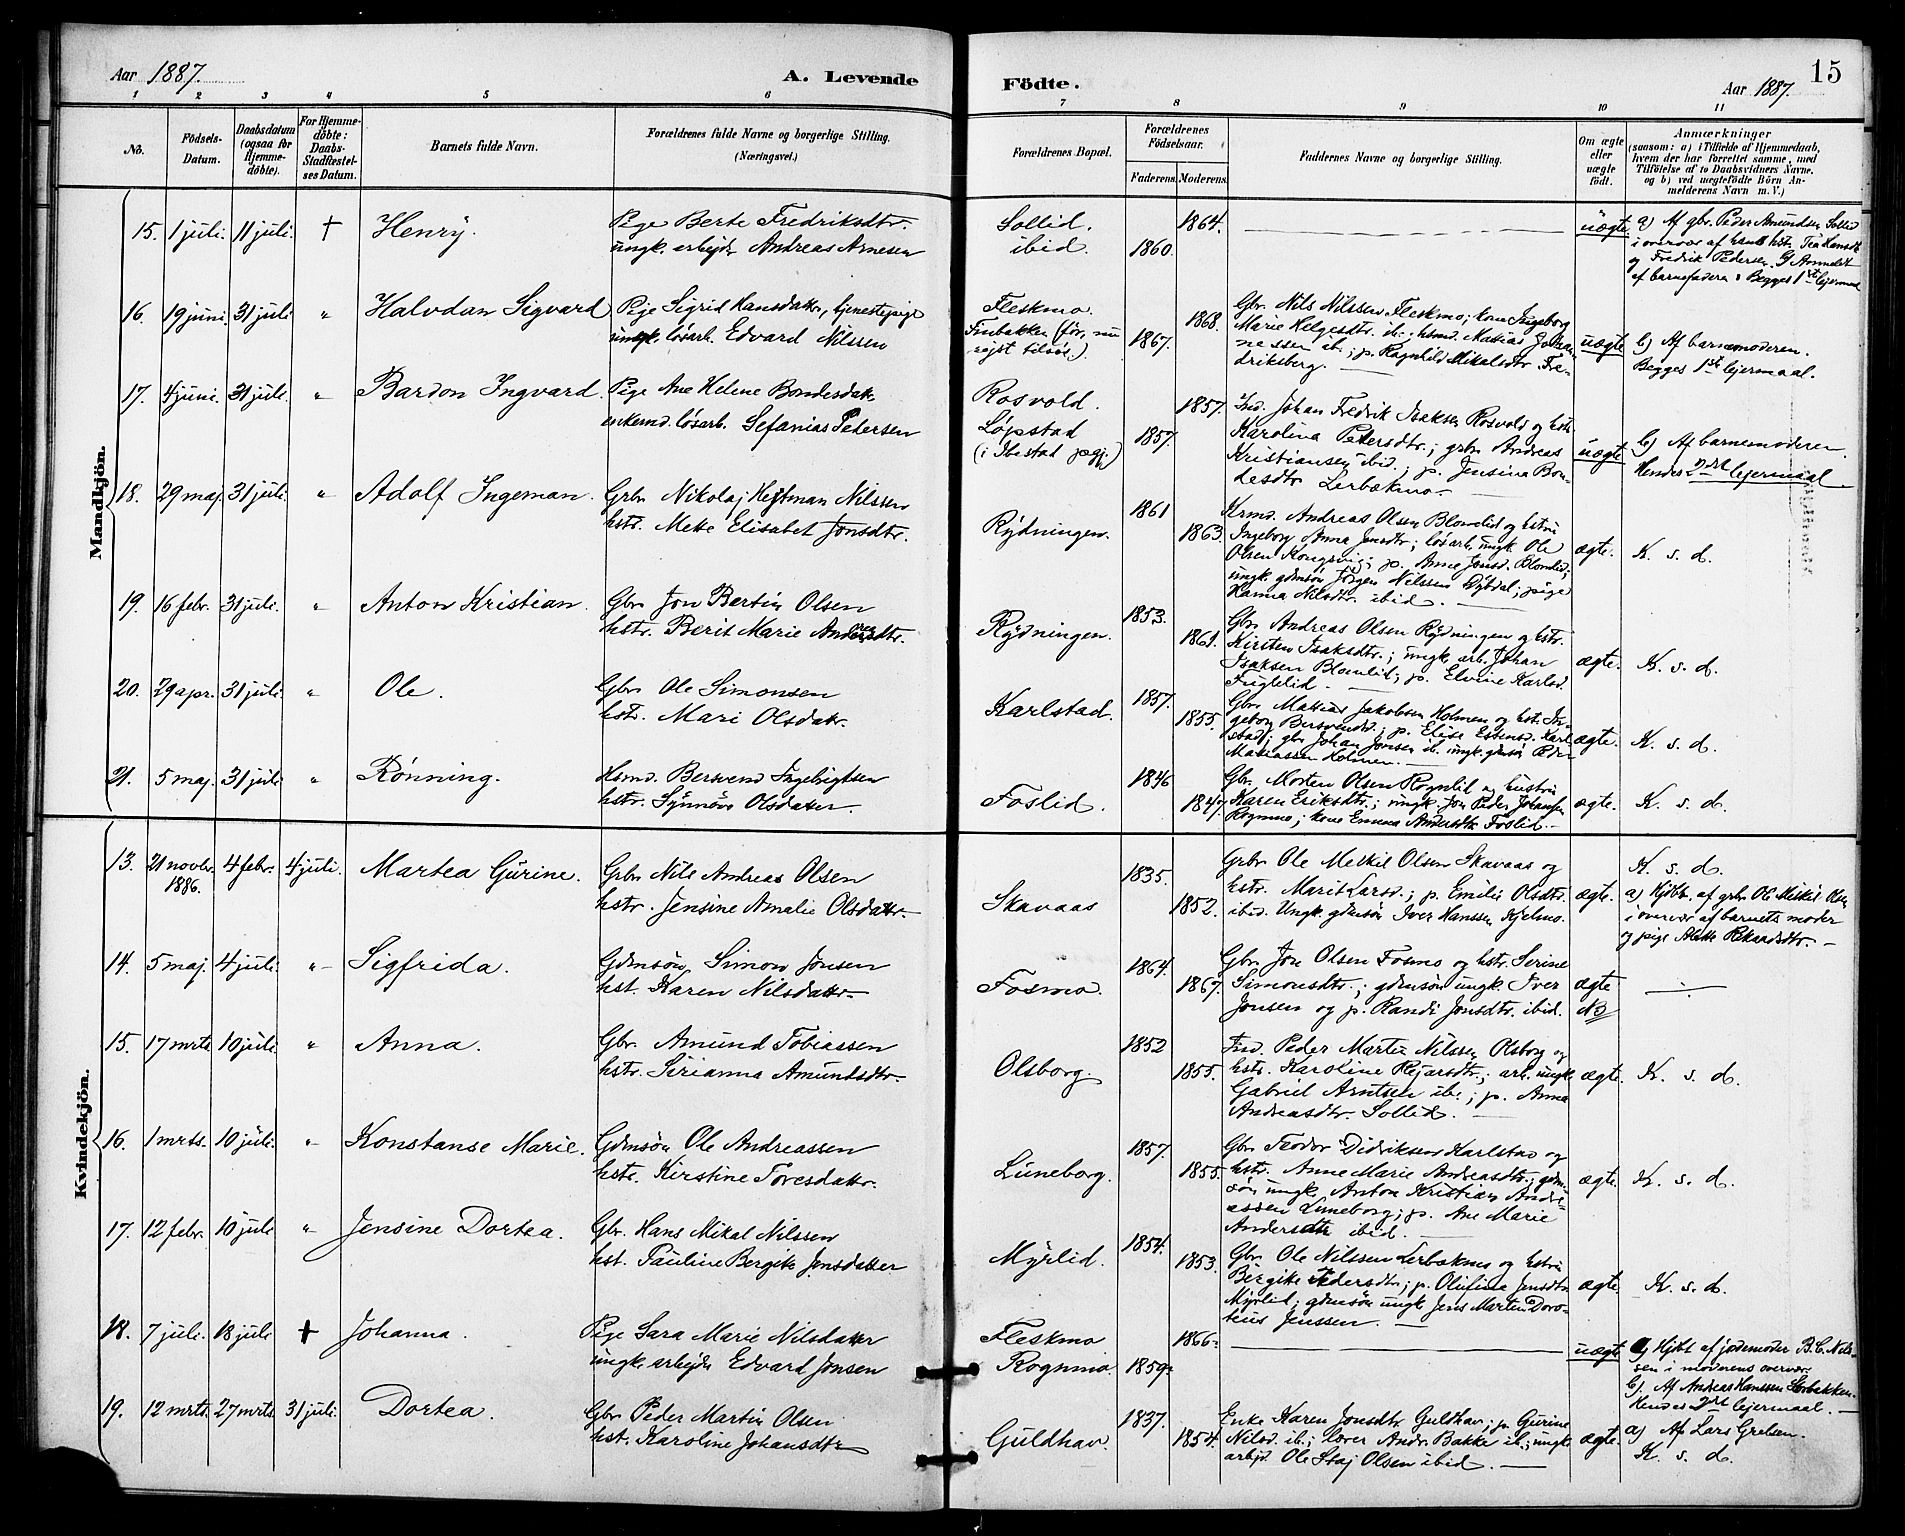 Aar 1887.
A. Levende
Födte.
Aar 1887.
15
1 2 3 4 5 6 7 8 9 10 11
No.
Födsels-
Datum.
Daabsdatum
(ogsaa for
Hjemme-
döbte).
For Hjemme-
döbte:
Daabs-
Stadfæstel-
ses Datum.
Barnets fulde Navn.
Forældrenes fulde Navne og borgerlige Stilling.
(Næringsvei.)
Forældrenes Bopæl.
Forældrenes
Födselsaar.
Faderens. Moderens.
Faddernes Navne og borgerlige Stilling.
Om ægte
eller
uægte
födt.
Anmærkninger
(saasom: a) i Tilfælde af Hjemmedaab,
hvem der har forrettet samme, med
Tilföielse af to Daabsvidners Navne.
og b) ved uægtefödte Börn An-
melderens Navn m. V.)
Mandkjön.
15. 1 juli. 11 juli. † Henrÿ. Pige Berte Fredriksdtr.
ungk. arbejdr Andreas Arnesen
Sollid.
ibid.
1860. 1864. uægte
a) Af gbr. Peder Amundsen Sollid
i overvær af hans hstr. Tea Hansdtr
og Fredrik Pedersen. b) Anmeldt
af barnefaderen: Begges 1ste lejermaal
16. 19 juni. 31 juli. „ Halvdan Sigvard Pige Sigrid Hansdatter, tjenestepige
ungk. løsarb. Edvard Nilssen
Fleskmo.
Finbakken (før, nu
rejst tilsøs.)
1867. 1868.
Gbr. Nils Nilssen Fleskmo; kone Ingeborg
Marie Helgesdtr. ib.; husmd. Matias Johan-
nessen ib.; p. Ragnhild Mikalsdtr Fre-
driksberg.
uægte
b) Af barnemoderen.
Begges 1ste lejermaal.
17. 4 juni. 31 juli. „ Bardon Ingvard. Pige Ane Helene Bondesdatr.
enkemd. løsarb. Sefanias Petersen
Rosvold.
Løpstad
(i Ibestad pgj.)
1857. 1857.
Ind. Johan Fredrik Isaksen Rosvold og hstr.
Karolina Pedersdtr.; grbr. Andreas
Kristiansen ibid.; p. Jensina Bon-
desdtr Lerbækmo.
uægte
b) Af barnemoderen.
Hendes 2det lejermaal.
18. 29 maj. 31 juli. „ Adolf Ingeman. Grbr. Nikolaj Hejtman Nilssen
hstr. Mette Elisabet Jonsdtr.
Rÿdningen.
1861 1863.
Krmd. Andreas Olsen Blomlid og hstru
Ingeborg Anna Jonsdtr.; løsarb. ungk. Ole
Olsen Kongsvig; p. Anne Jonsd. Blomlid;
ungk. gdmsøn Jørgen Nilssen Dÿbdal; pige
Hanna Nilsdtr. ibid.
ægte. K. s. d.
19. 16 febr. 31 juli. „ Anton Kristian. Gbr. Jon Bertin Olsen
hstr. Berit Marie Andersdtr.
Rÿdningen.
1853. 1861.
Gbr. Andreas Olsen Rÿdningen og hstr.
Kirsten Isaksdtr.; ungk. arb. Johan
Isaksen Blomlid; p. Elvine Karlsd.
Fuglelid.
ægte. K. s. d.
20. 29 apr. 31 juli. „ Ole. Gbr. Ole Simonsen
hstr. Mari Olsdatr.
Karlstad.
1857. 1855.
Gbr. Mattias Jakobsen Holmen og hstr. In-
geborg Bersvendtr.; p. Elise Estensd. Karl-
stad; gbr. Johan Jonsen ib. ungk. gdmsøn Peder
Matiassen Holmen.
ægte. K. s. d.
21. 5 maj. 31 juli. „ Rønning. Husmd. Bersvend Ingebrigtsen
hstr. Synnøve Olsdatter.
Foslid.
1846 1847.
Gbr. Morten Olsen Rognlid og hustru
Karen Eriksdtr.; ungk. Jon Peder Johansen
Rognmo; kone Emma Andersdtr Foslid.
ægte. K. s. d.
Kvindekjön.
13. 21 novbr. 1886. 4 febr. 4 juli. Martea Gürine. Grbr. Nils Andreas Olsen
hstr. Jensine Amalie Olsdattr.
Skavaas
1835. 1852.
Grbr. Ole Meskil Olsen Skavaas og
hstr. Marit Larsd.; p. Emilie Olsdtr.
ibid. Ungk. gdmsøn Iver Hanssen Kjelmo.
ægte.
K. s. d.
a) Hjdbt. af grbr. Ole Meskil Olsen
i overvær af barnets moder
og pige Alette Rikardsdtr.
14. 5 maj. 4 juli. „ Sigfrida. Gdmsøn Simon Jonsen
hst. Karen Nilsdattr.
Fosmo.
1864. 1867.
Gbr. Jon Olsen Fosmo og hstr. Serine
Simonsdtr.; gdmsøn ungk. Iver
Jonsen og p. Randi Jonsdtr. ibid.
ægte
NB
15. 17 mrts 10 juli. „ Anna. Gbr. Amund Tobiassen
hstr. Sirianna Amundsdtr.
Olsborg.
1852 1855.
Ind. Peder Martin Nilssen Olsborg og
hstr. Karoline Pejarsdtr.; arb. ungk.
Gabriel Arntsen ib.; p. Anna
Andreasdtr. Sollid.
ægte. K. s. d.
16. 1 mrts. 10 juli. „ Konstanse Marie. Gdmsøn Ole Andreassen
hstr. Kirstine Toresdattr.
Lüneborg.
1857. 1855.
Gbr. Teodor Didriksen Karlstad og
hstr. Anne Marie Andreasdtr.; gdm-
søn ungk. Anton Kristian Andre-
assen Luneborg; p. Ane Marie
Andersdtr ibid.
ægte. K. s. d.
17. 12 febr. 10 juli „ Jensine Dortea. Gbr. Hans Mikal Nilssen
hst. Pauline Bergite Jensdatter
Mÿrlid.
1854. 1853.
Gbr. Ole Nilssen Lerbækmo og hstru
Birgite Pedersdtr; p. Olufina Jensdtr.
Mÿrlid; gdmsøn ungk Jens Martin Doro-
teus Jenssen.
ægte K. s. d.
18. 7 juli. 18 juli † Johanna. Pige Sara Marie Nilsdatter
ungk. arbejdr Edvard Jonsen
Fleskmo
Rognmo.
1859. 1866.
uægte
a) Hjdbt af jordemoder B. C. Nils-
sen i moderens overvær.
b). Af Andreas Hanssen Storbakken.
Hendes 2det lejermaal.
19. 12 mrts. 27 mrts. 31 juli. Dortea. Gbr. Peder Martin Olsen
hst. Karoline Johansdtr
Guldhav.
1837. 1854.
Enke Karen Jonsdtr. Guldhav; p. Gurine
Nilsd. ib.; lærer Andr. Bakke ib.; ungk.
arbejd. Ole Staj Olsen ibid.
ægte.
a) Af Lars Grelsen.
K. s. d.